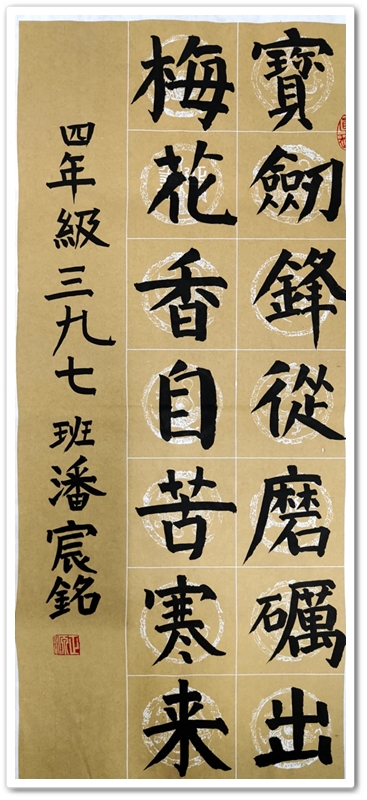 寶劒鋒從磨礪出
梅花香自苦寒来
四年級三九七班潘宸銘